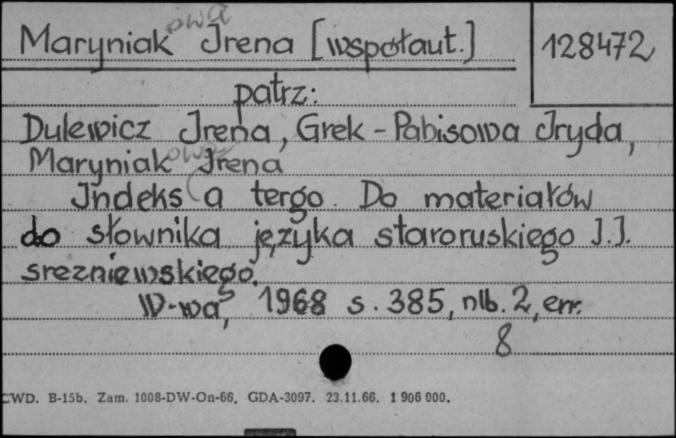 Maryniakowa Irena [współaut.] 128472
patrz:
Dulewicz Irena, Grek-Pabisowa Iryda,
Maryniakowa Irena
Indeks a tergo. Do materiałów
do słownika języka staroruskiego I.I.
srezniewskiego.
W-wa, 1968 s. 385, nlb. 2, err.
8
CWD. B-15b. Zam. 1008-DW-On-66. GDA-3097. 23.11.66. 1 906 000.